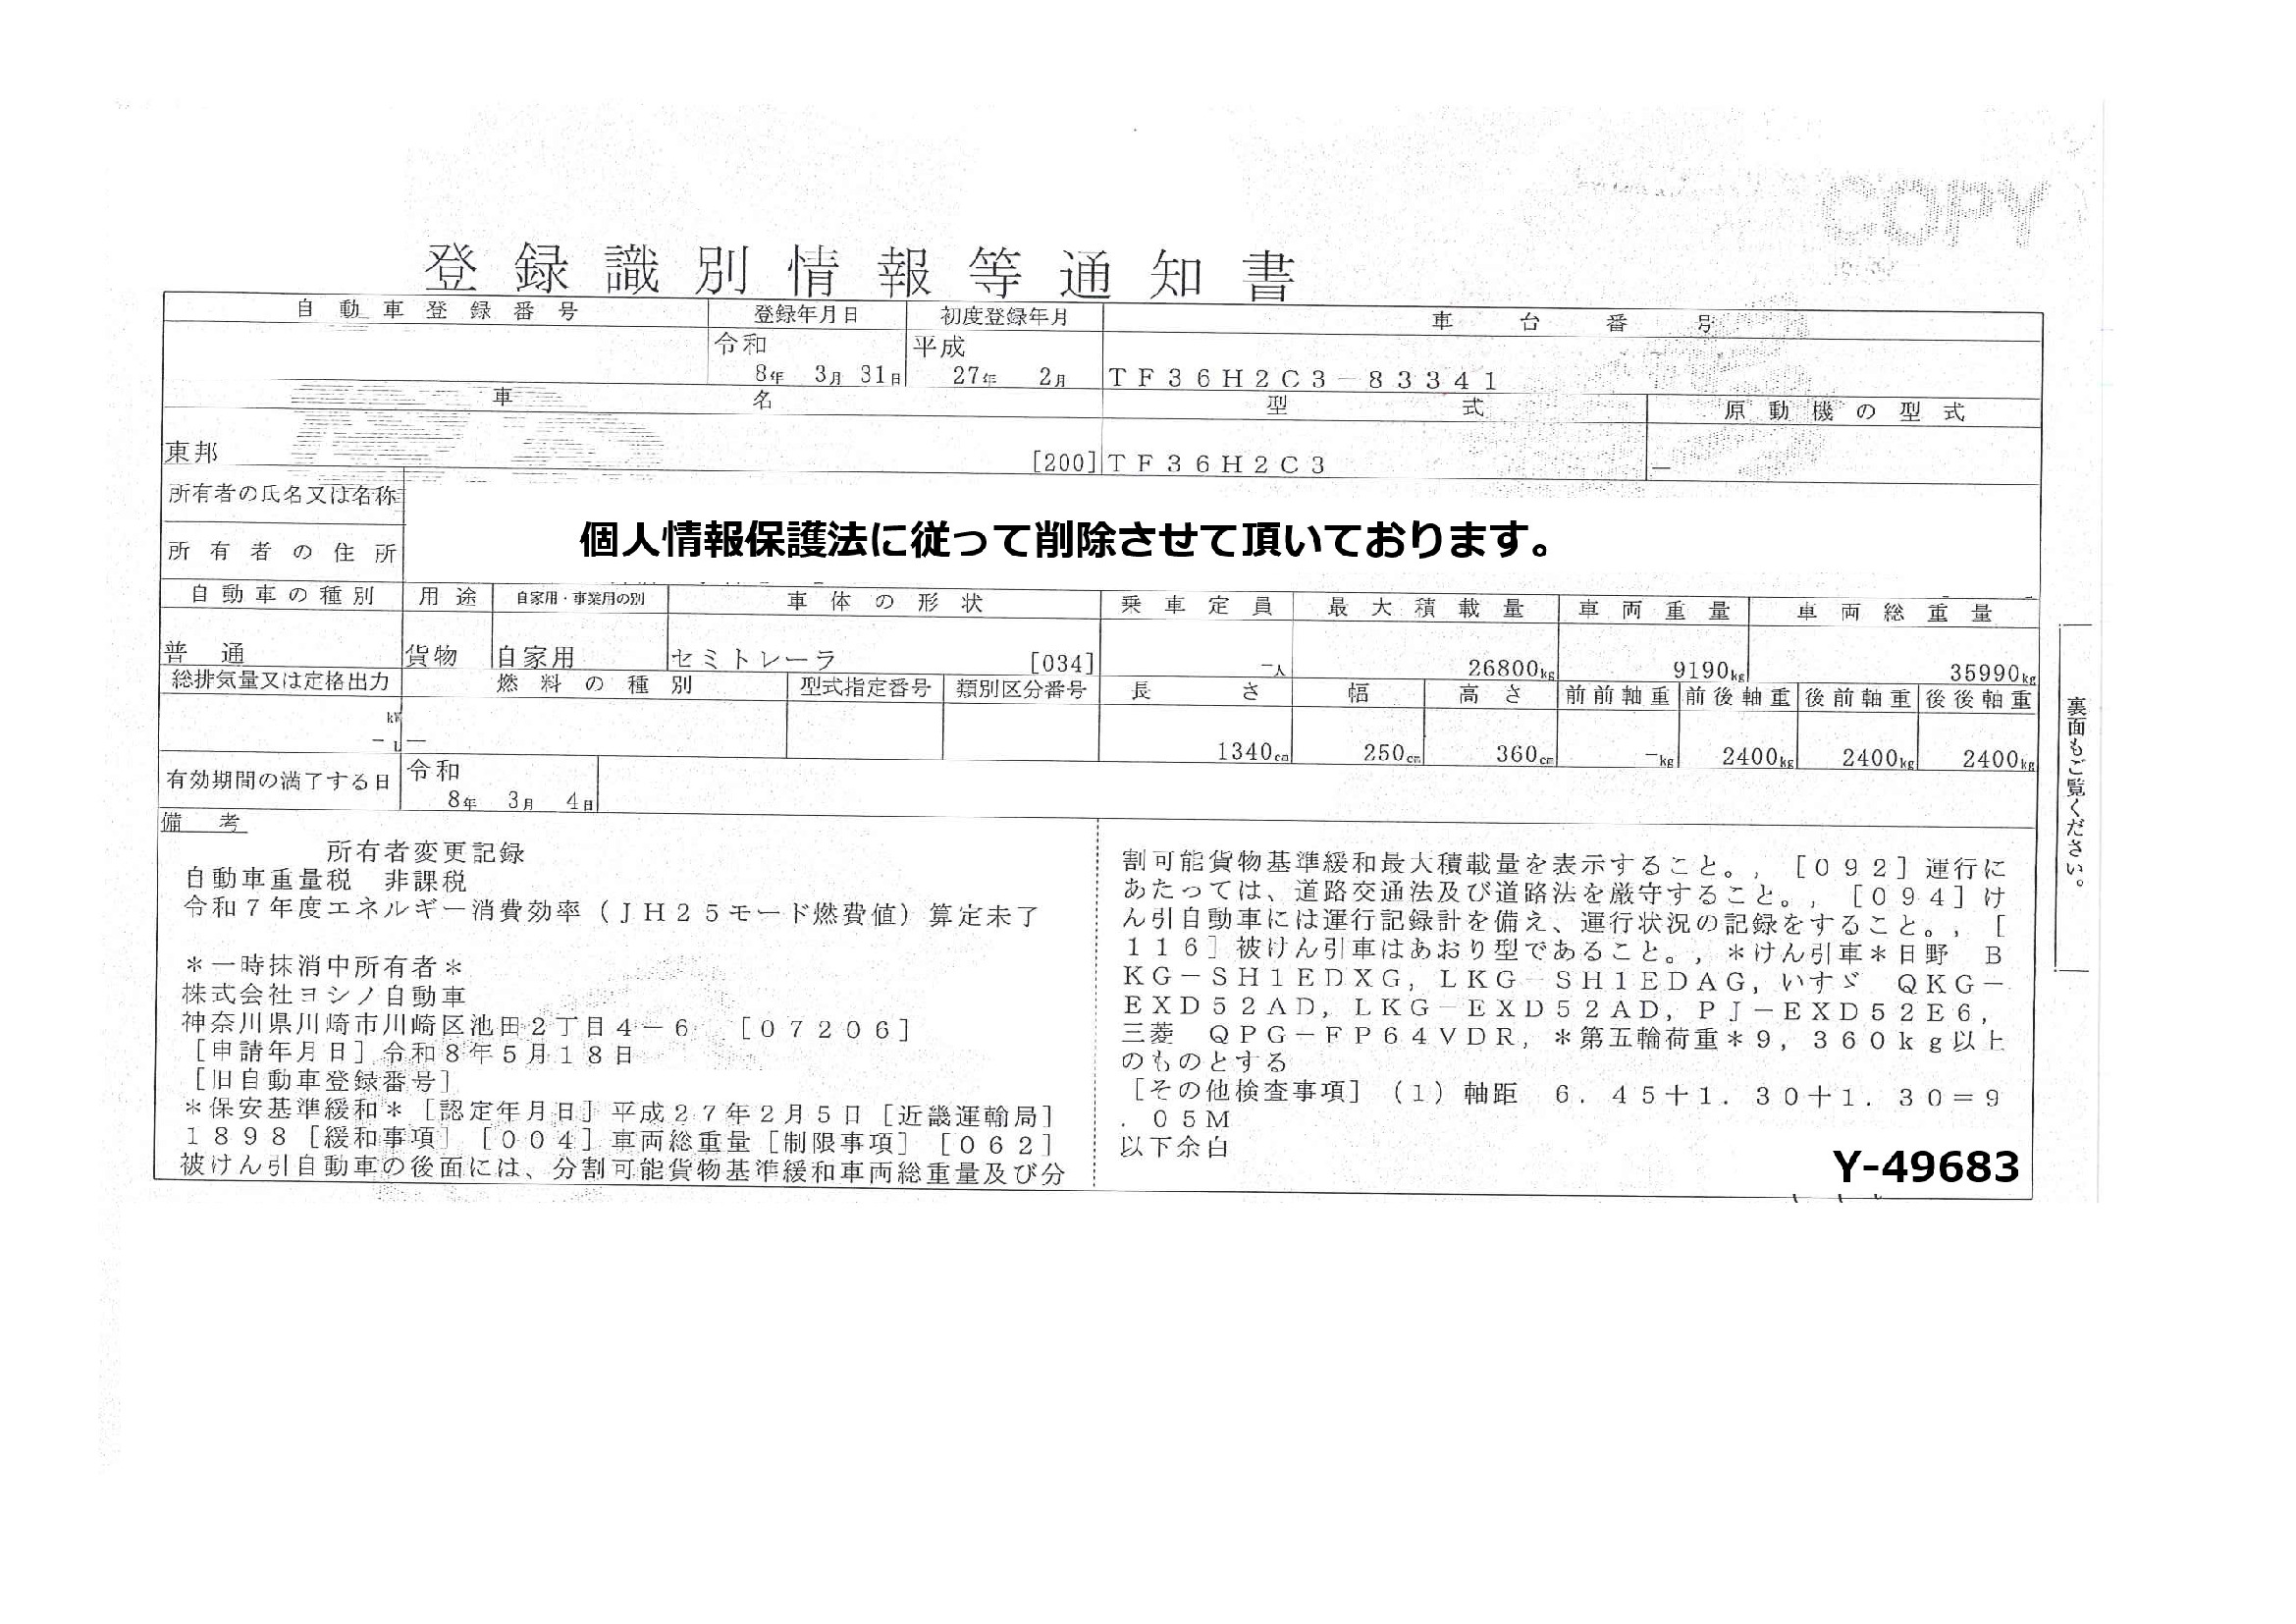 COPY
登録識別情報等通知書
自動車登録番号 登録年月日 初度登録年月 車台番号
令和 平成
8年 3月 31日 27年 2月 TF36H2C3-83341
車名 型式 原動機の型式
東邦 [200] TF36H2C3 －
所有者の氏名又は名称
個人情報保護法に従って削除させて頂いております。
所有者の住所
自動車の種別 用途 自家用・事業用の別 車体の形状 乗車定員 最大積載量 車両重量 車両総重量
普通 貨物 自家用 セミトレーラ [034] －人 26800kg 9190kg 35990kg
総排気量又は定格出力 燃料の種別 型式指定番号 類別区分番号 長さ 幅 高さ 前前軸重 前後軸重 後前軸重 後後軸重
kW
－ L － 1340cm 250cm 360cm －kg 2400kg 2400kg 2400kg
有効期間の満了する日 令和
8年 3月 4日
備考
所有者変更記録
自動車重量税 非課税
令和７年度エネルギー消費効率（ＪＨ２５モード燃費値）算定未了
＊一時抹消中所有者＊
株式会社ヨシノ自動車
神奈川県川崎市川崎区池田２丁目４－６ ［０７２０６］
［申請年月日］令和８年５月１８日
［旧自動車登録番号］
＊保安基準緩和＊［認定年月日］平成２７年２月５日［近畿運輸局］
１８９８［緩和事項］［００４］車両総重量［制限事項］［０６２］
被けん引自動車の後面には、分割可能貨物基準緩和車両総重量及び分
割可能貨物基準緩和最大積載量を表示すること。，［０９２］運行に
あたっては、道路交通法及び道路法を厳守すること。，［０９４］け
ん引自動車には運行記録計を備え、運行状況の記録をすること。，［
１１６］被けん引車はあおり型であること。，＊けん引車＊日野 Ｂ
ＫＧ－ＳＨ１ＥＤＸＧ，ＬＫＧ－ＳＨ１ＥＤＡＧ，いすゞ ＱＫＧ－
ＥＸＤ５２ＡＤ，ＬＫＧ－ＥＸＤ５２ＡＤ，ＰＪ－ＥＸＤ５２Ｅ６，
三菱 ＱＰＧ－ＦＰ６４ＶＤＲ，＊第五輪荷重＊９，３６０ｋｇ以上
のものとする
［その他検査事項］（１）軸距 ６．４５＋１．３０＋１．３０＝９
．０５Ｍ
以下余白
Y-49683
裏面もご覧ください。